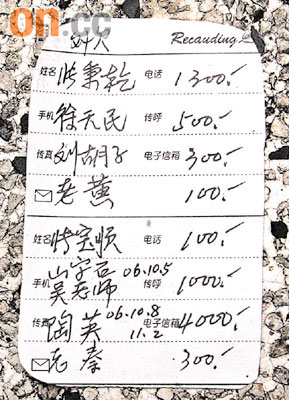 on.cc
Recauding
姓名 张秉乾 电话 1300.-
手机 徐天民 传呼 500.-
传真 刘胡子 电子信箱 300.-
老黄 100.-
姓名 张宝顺 电话 100.-
山字石 06.10.5
手机 吴老师 传呼 1000.-
传真 陶英 06.10.8 电子信箱 4000.-
11.2
老秦 300.-